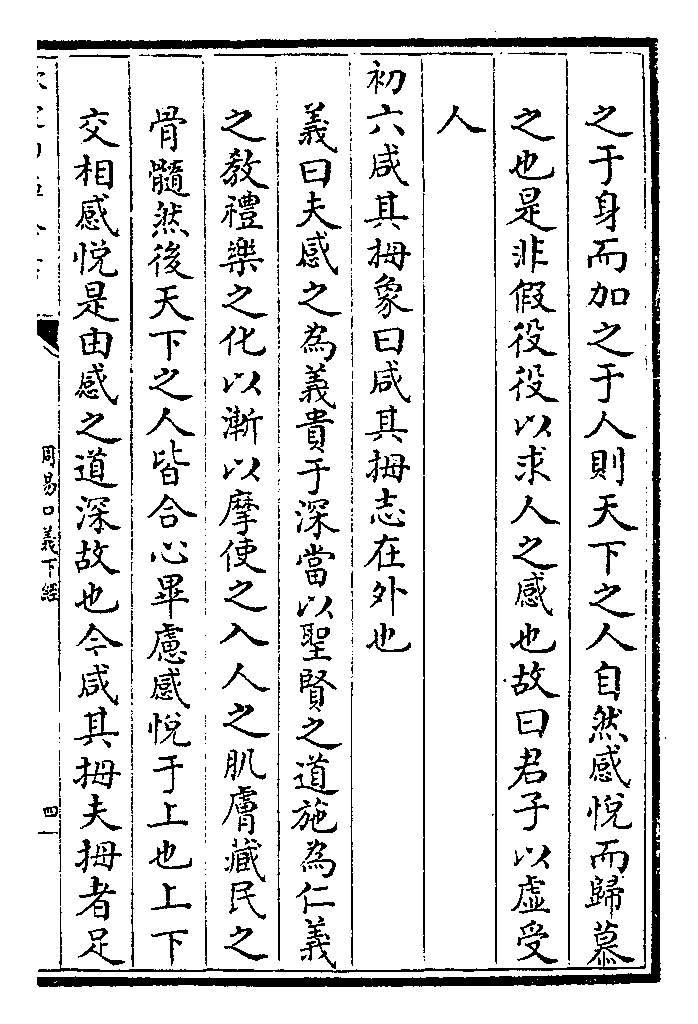 之于身而加之于人則天下之人自然感悅而歸慕
之也是非假役役以求人之感也故曰君子以虛受
人
初六咸其拇象曰咸其拇志在外也
義曰夫感之為義貴于深當以聖賢之道施為仁義
之教禮樂之化以漸以摩使之入人之肌膚藏民之
骨髓然後天下之人皆合心畢慮感悅于上也上下
交相感悅是由感之道深故也今咸其拇夫拇者足
周易口義下經
四一